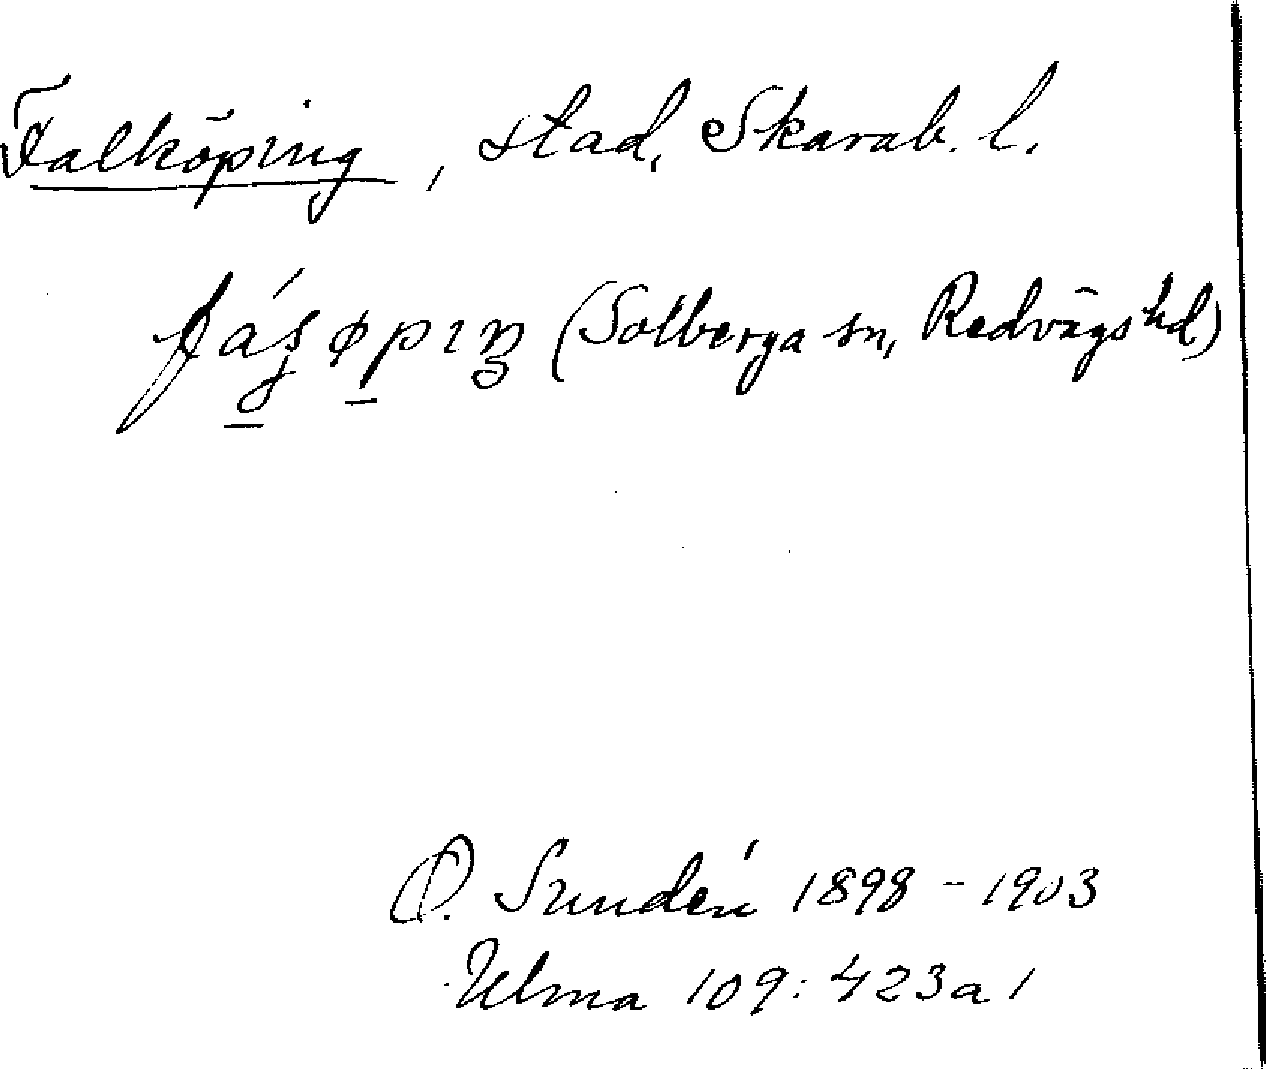 Falköping, stad, Skarab. l.
(Solberga sn, Redvägs hd)
O. Sundén 1898-1903
Ulma 109:423a 1